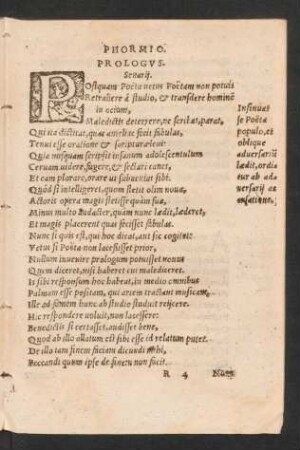 PHORMIO.
PROLOGVS.
Senarij.
POstquam Poëta uetus Poëtam non potuit
Retrahere à studio, & transdere hominē
in ocium,
Maledictis deterrere, ne scribat, parat,
Qui ita dictitat, quas antehac fecit fabulas,
Tenui esse oratione & scriptura leui:
Quia nusquam scripsit insanum adolescentulum
Ceruam uidere, fugere, & sectari canes,
Et eam plorare, orare ut subueniat sibi.
Quòd si intelligeret, quum stetit olim noua,
Actoris opera magis stetisse quàm sua,
Minus multo audacter, quàm nunc lædit, læderet,
Et magis placerent quas fecisset fabulas.
Nunc si quis est, qui hoc dicat, aut sic cogitet:
Vetus si Poëta non lacessisset prior,
Nullum inuenire prologum potuisset nouus
Quem diceret, nisi haberet cui malediceret.
Is sibi responsum hoc habeat, in medio omnibus
Palmam esse positam, qui artem tractant musicam,
Ille ad famem hunc ab studio studuit reijcere.
Hic respondere uoluit, non lacessere:
Benedictis si certasset, audisset bene,
Quod ab illo allatum est sibi esse id relatum putet.
De illo iam finem faciam dicundi mihi,
Peccandi quum ipse de se finem non facit.
R 4
Insinuat
se Poëta
populo, et
oblique
aduersariū
lædit, ordi
tur ab ad
uersarij ac
cusatione.